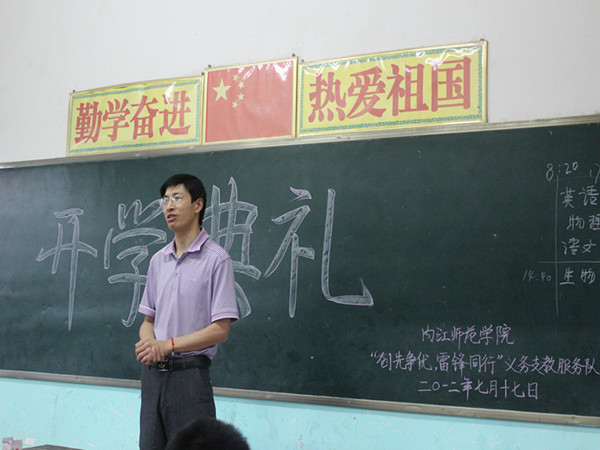 勤学奋进
热爱祖国
开学典礼
8:20
英语
物理
语文
14:40 生物
内江师范学院
“创先争优,雷锋同行”义务支教服务队
二〇一二年七月十七日